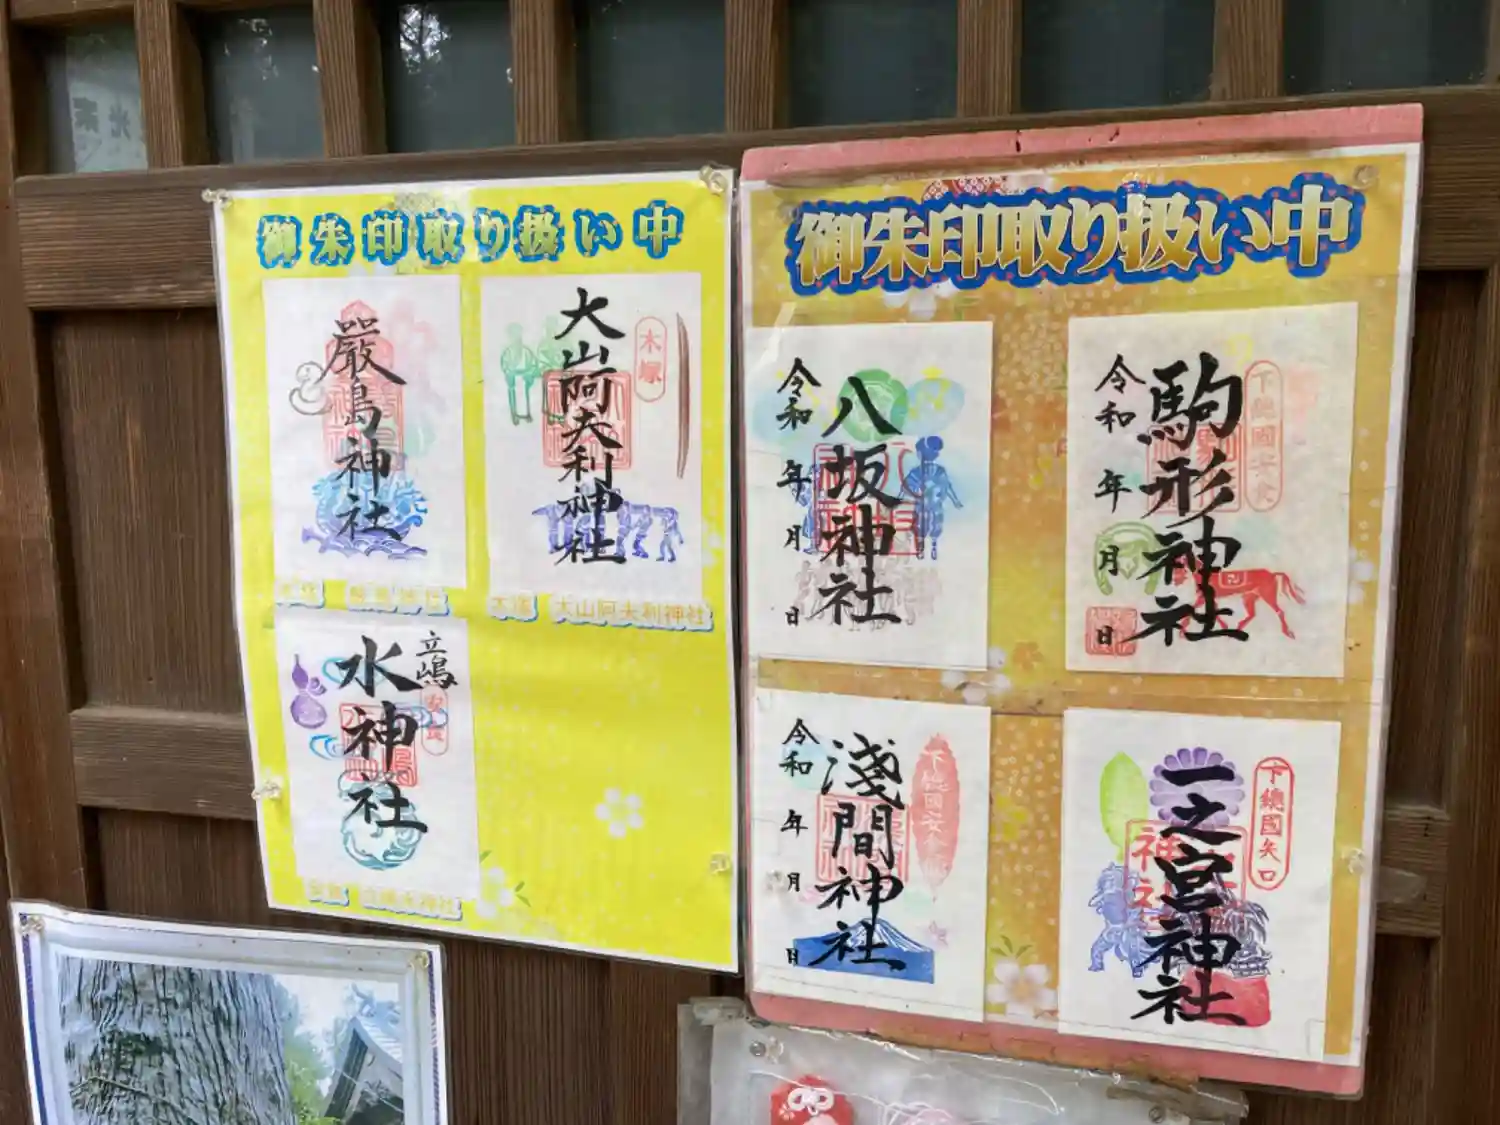 御朱印取り扱い中
嚴島神社
大山阿夫利神社
木塚
木塚 大山阿夫利神社
立嶋
水神社
安食
御朱印取り扱い中
八坂神社
令和 年 月 日
駒形神社
令和 年 月 日
下總國安食
淺間神社
令和 年 月 日
一之宮神社
下總國矢口